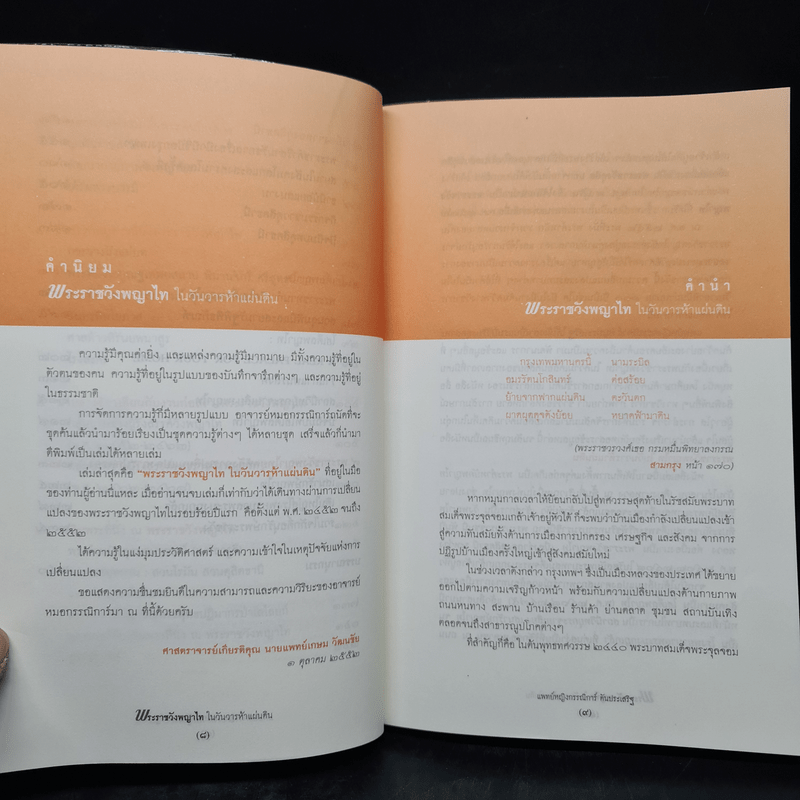 คำนิยม
พระราชวังพญาไท ในวันวารห้าแผ่นดิน
ความรู้มีคุณค่ายิ่ง และแหล่งความรู้มีมากมาย มีทั้งความรู้ที่อยู่ใน
ตัวตนของคน ความรู้ที่อยู่ในรูปแบบของบันทึกจารึกต่างๆ และความรู้ที่อยู่
ในธรรมชาติ
การจัดการความรู้ก็มีหลายรูปแบบ อาจารย์หมอกรรณิการ์ถนัดที่จะ
ขุดค้นแล้วนำมาร้อยเรียงเป็นชุดความรู้ต่างๆ ได้หลายชุด เสร็จแล้วก็นำมา
ตีพิมพ์เป็นเล่มได้หลายเล่ม
เล่มล่าสุดคือ “พระราชวังพญาไท ในวันวารห้าแผ่นดิน” ที่อยู่ในมือ
ของท่านผู้อ่านนี่แหละ เมื่ออ่านจนจบเล่มก็เท่ากับว่าได้เดินทางผ่านการเปลี่ยน
แปลงของพระราชวังพญาไทในรอบร้อยปีแรก คือตั้งแต่ พ.ศ. ๒๔๕๒ จนถึง
๒๕๕๒
ได้ความรู้ในแง่มุมประวัติศาสตร์ และความเข้าใจในเหตุปัจจัยแห่งการ
เปลี่ยนแปลง
ขอแสดงความชื่นชมยินดีในความสามารถและความวิริยะของอาจารย์
หมอกรรณิการ์มา ณ ที่นี้ด้วยครับ
ศาสตราจารย์เกียรติคุณ นายแพทย์เกษม วัฒนชัย
๑ ตุลาคม ๒๕๕๒
พระราชวังพญาไท ในวันวารห้าแผ่นดิน
(๘)
คำนำ
พระราชวังพญาไท ในวันวารห้าแผ่นดิน
กรุงเทพมหานครนี้ นามระบิล
อมรรัตนโกสินทร์ ต่อสร้อย
ย้ายจากฟากแผ่นดิน ตะวันตก
ผาดผุดดุจดังย้อย หยาดฟ้ามาดิน
(พระราชวรวงศ์เธอ กรมหมื่นพิทยาลงกรณ
สามกรุง หน้า ๑๗๐)
หากหมุนกาลเวลาให้ย้อนกลับไปสู่ทศวรรษสุดท้ายในรัชสมัยพระบาท
สมเด็จพระจุลจอมเกล้าเจ้าอยู่หัวได้ ก็จะพบว่าบ้านเมืองกำลังเปลี่ยนแปลงเข้า
สู่ความทันสมัยทั้งด้านการปกครอง เศรษฐกิจ และสังคม จากการ
ปฏิรูปบ้านเมืองครั้งใหญ่เข้าสู่สังคมสมัยใหม่
ในช่วงเวลาดังกล่าว กรุงเทพฯ ซึ่งเป็นเมืองหลวงของประเทศ ได้ขยาย
ออกไปตามความเจริญก้าวหน้า พร้อมกับความเปลี่ยนแปลงด้านกายภาพ
ถนนหนทาง สะพาน บ้านเรือน ร้านค้า ย่านตลาด ชุมชน สถานบันเทิง
ตลอดจนถึงสาธารณูปโภคต่างๆ
ที่สำคัญก็คือ ในต้นพุทธทศวรรษ ๒๔๔๐ พระบาทสมเด็จพระจุลจอม
แพทย์หญิงกรรณิการ์ ตันประเสริฐ
(๙)